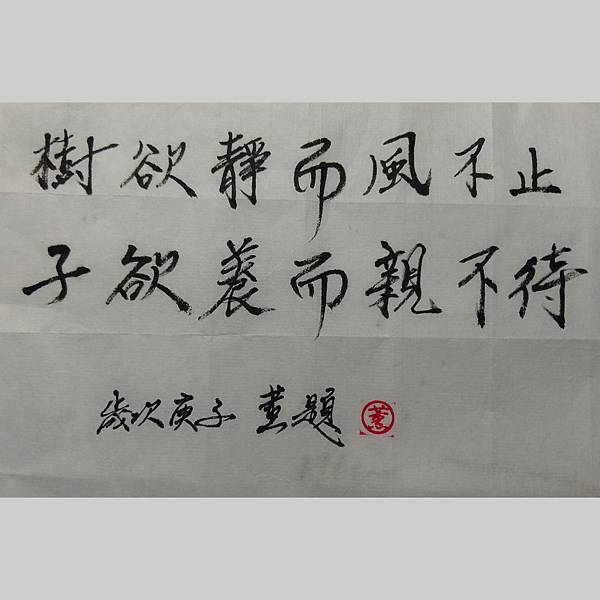 樹欲靜而風不止
子欲養而親不待
歲次庚子 題